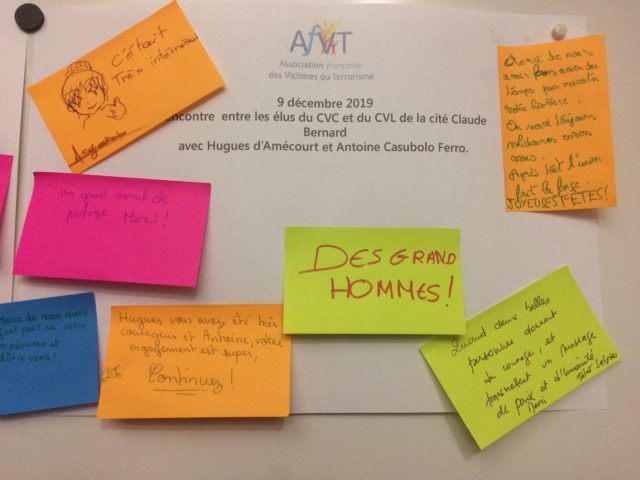 AfVT
Association française
des Victimes du Terrorisme
9 décembre 2019
encontre entre les élus du CVC et du CVL de la cité Claude
Bernard
avec Hugues d'Amécourt et Antoine Casubolo Ferro.
C'était
Très
Merci de nous
avoir
temps pour raconter
votre histoire.
On sera toujours
solidaires envers
vous.
Après tout l'union
fait la force.
JOYEUSES FÊTES!
Un grand merci!
DES GRAND
HOMMES!
Merci de nous avoir
fait part de votre
expérience et
d'être venu!
Hugues vous avez été très
courageux et Antoine, votre
engagement est super,
Continuez!
Quand deux belles
personnes donnent
du courage, et
transmettent un message
de paix et d'humanité
Merci